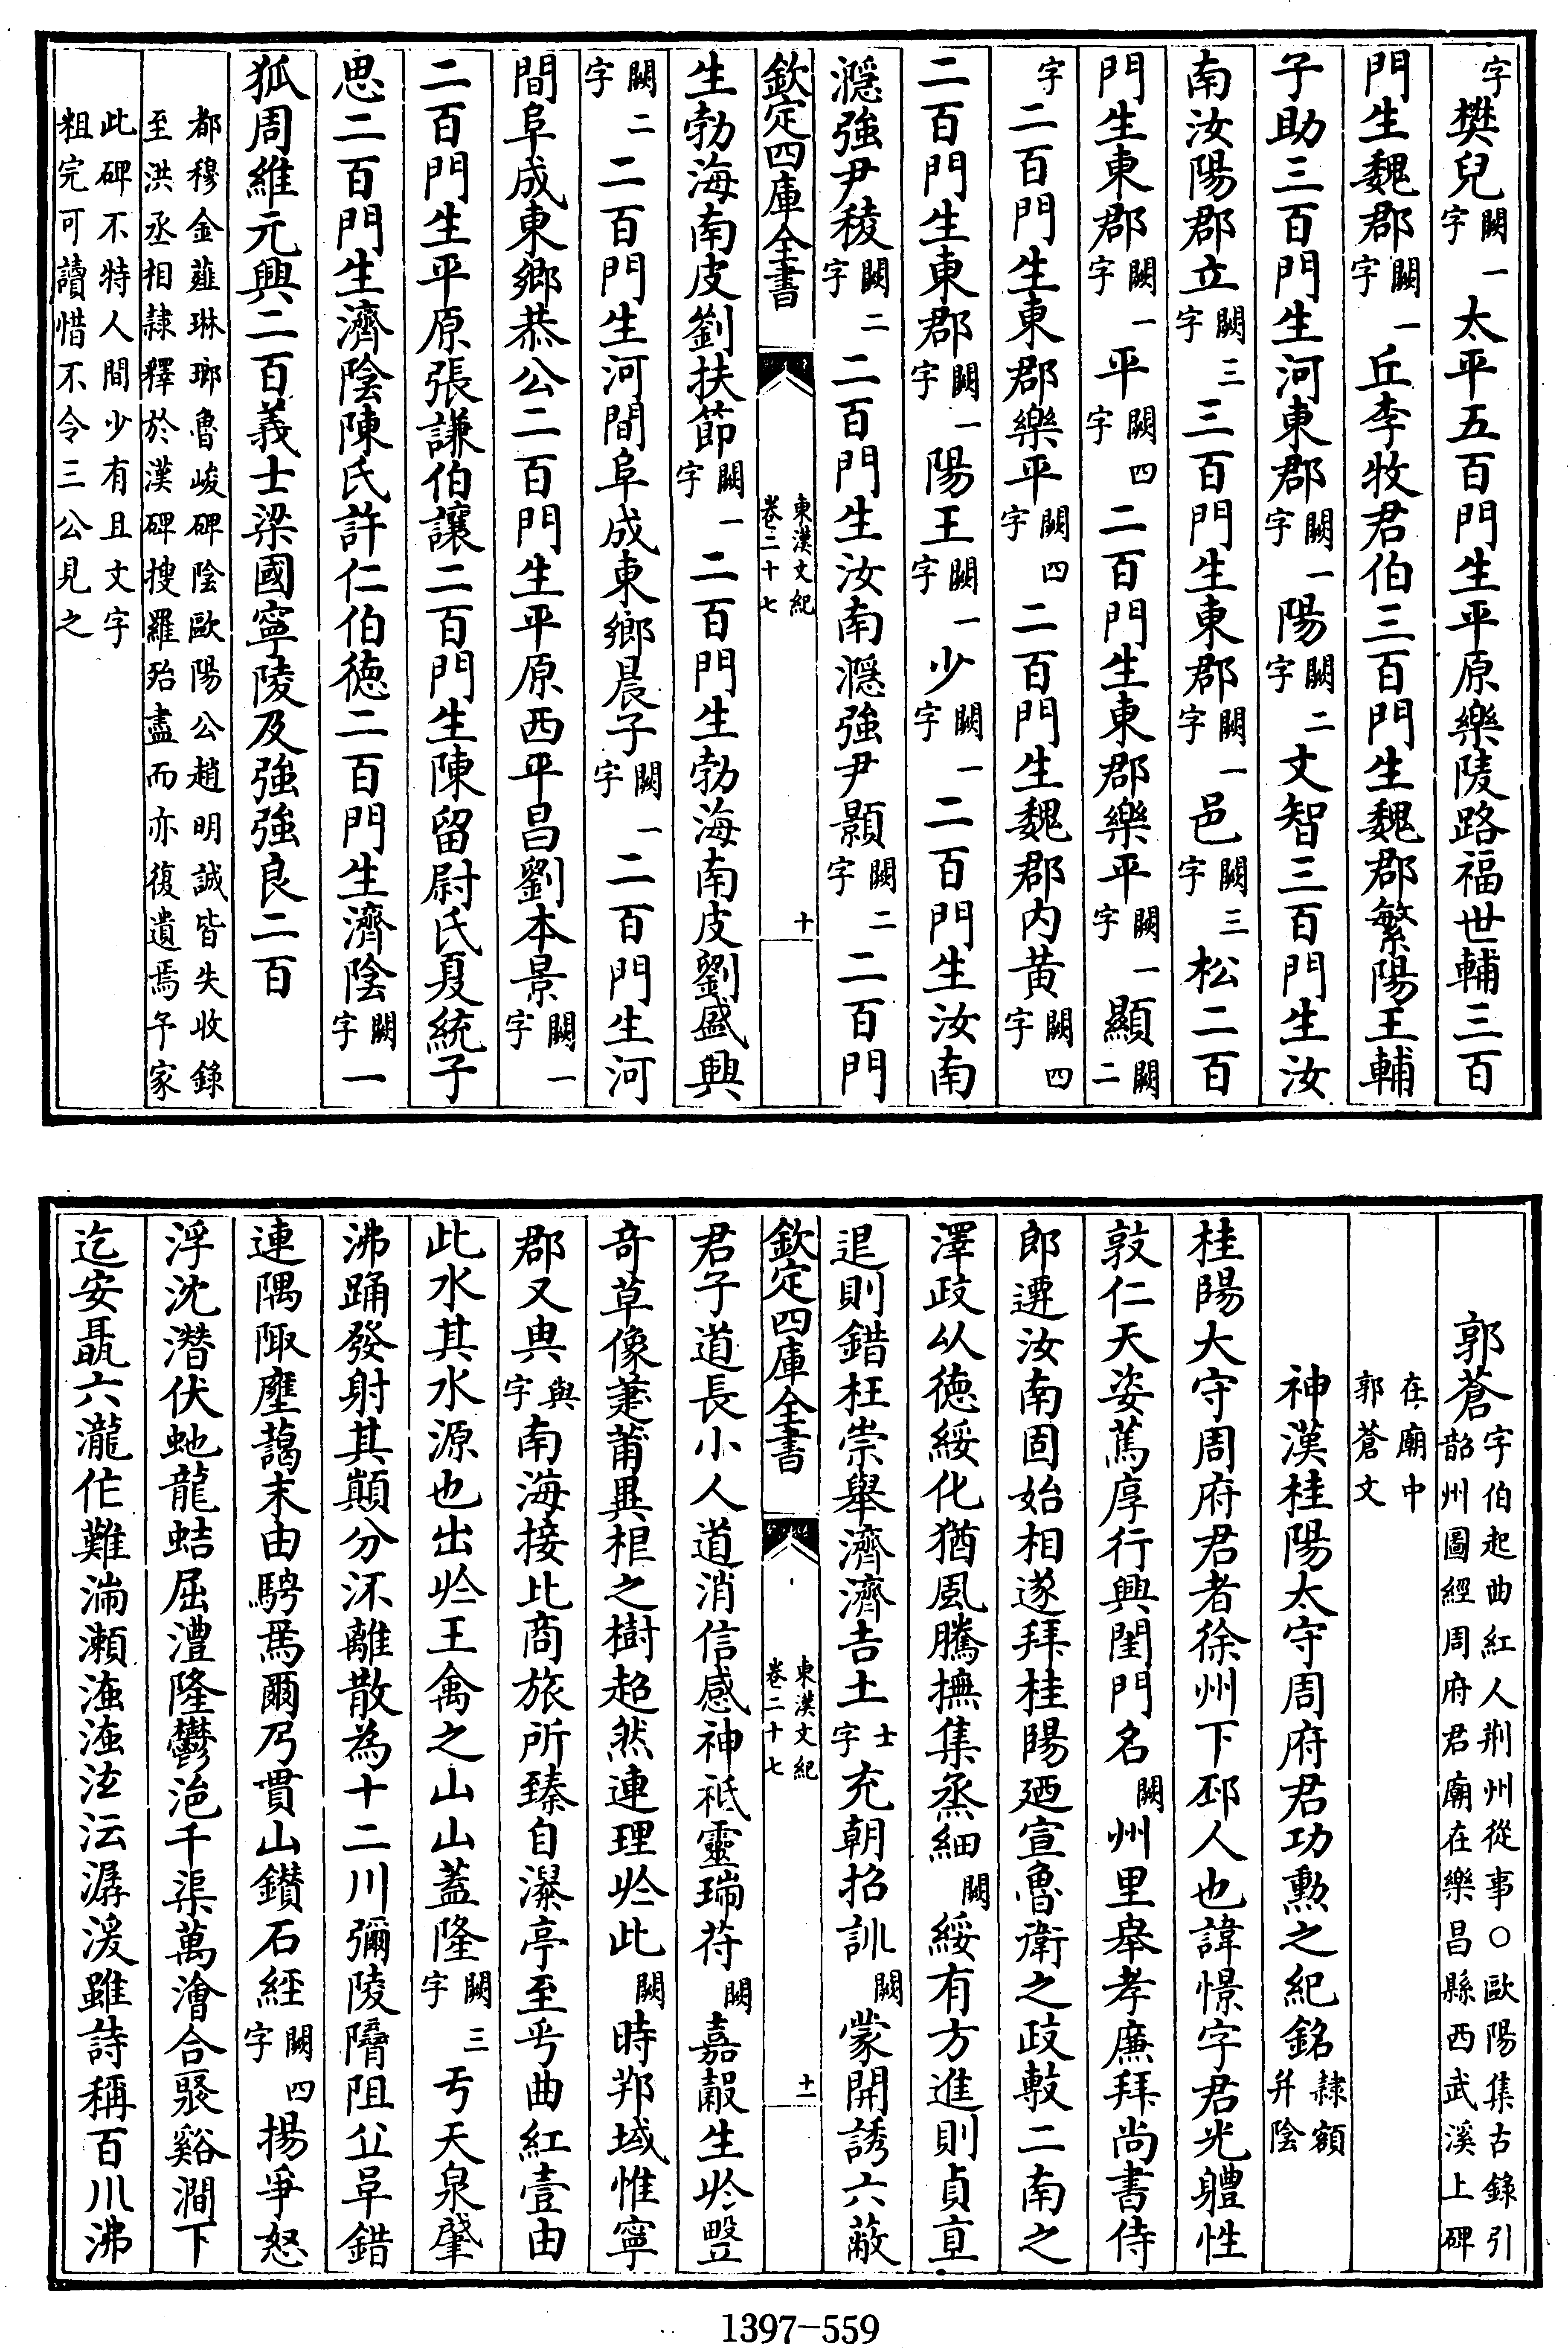 字樊兒闕一字太平五百門生平原樂陵路福世輔三百
門生魏郡闕一字丘李牧君伯三百門生魏郡繁陽王輔
子助三百門生河東郡闕一字陽闕二字文智三百門生汝
南汝陽郡立闕三字三百門生東郡闕一字邑闕三字松二百
門生東郡闕一字平闕四字二百門生東郡樂平闕一字顯闕二
字二百門生東郡樂平闕四字二百門生魏郡內黃闕四字
二百門生東郡闕一字陽王闕一字少闕一字二百門生汝南
濦強尹稜闕二字二百門生汝南濦強尹顥闕二字二百門
欽定四庫全書 東漢文紀 卷二十七 十
生勃海南皮劉扶節闕一字二百門生勃海南皮劉盛興
闕二字二百門生河間阜成東鄉晨子闕一字二百門生河
間阜成東鄉恭公二百門生平原西平昌劉本景闕一字
二百門生平原張謙伯讓二百門生陳留尉氏夏統子
思二百門生濟陰陳氏許仁伯德二百門生濟陰闕一字
狐周維元興二百義士梁國寧陵及強強良二百
都穆金薤琳瑯魯峻碑陰歐陽公趙明誠皆失收錄
至洪丞相隸釋於漢碑搜羅殆盡而亦復遺焉予家
此碑不特人間少有且文字
粗完可讀惜不令三公見之
郭蒼字伯起曲紅人荆州從事○歐陽集古錄引
韶州圖經周府君廟在樂昌縣西武溪上碑
在廟中
郭蒼文
神漢桂陽太守周府君功勲之紀銘隸額
并陰
桂陽大守周府君者徐州下邳人也諱憬字君光軆性
敦仁天姿篤厚行興閨門名闕州里舉孝廉拜尚書侍
郎遷汝南固始相遂拜桂陽廼宣魯衛之政敷二南之
澤政以德綏化猶風騰撫集烝細闕綏有方進則貞直
退則錯枉崇舉濟濟吉土士字充朝招訓闕蒙開誘六蔽
欽定四庫全書 東漢文紀 卷二十七 十一
君子道長小人道消信感神祇靈瑞符闕嘉糓生扵野
奇草像蓂莆異根之樹超然連理扵此闕時邦域惟寧
郡又典與字南海接比商旅所臻自瀑亭至乎曲紅壹由
此水其水源也出扵王禽之山山蓋隆闕三字于天泉肇
沸踊發射其巔分沠離散為十二川彌陵隮阻丘阜錯
連隅陬壅藹末由騁焉爾乃貫山鑽石經闕四字揚爭怒
浮沈潛伏虵龍蛣屈澧隆鬱浥千渠萬澮合聚谿澗下
迄安聶六瀧作難湍瀨洭洭泫沄潺湲雖詩稱百川沸
1397-559